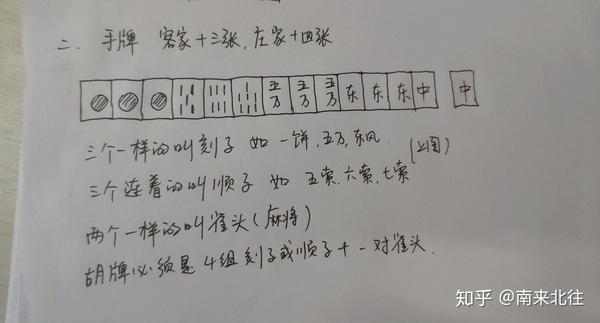 二、手牌 客家十三张,庄家十四张
五万 五万 五万 东 东 东 中 中
三个一样的叫刻子 如 一饼,五万,东风.
三个连着的叫顺子 如 五索,六索,七索 (上图)
两个一样的叫雀头(麻将)
胡牌必须是4组刻子或顺子+一对雀头.
知乎 @南来北往